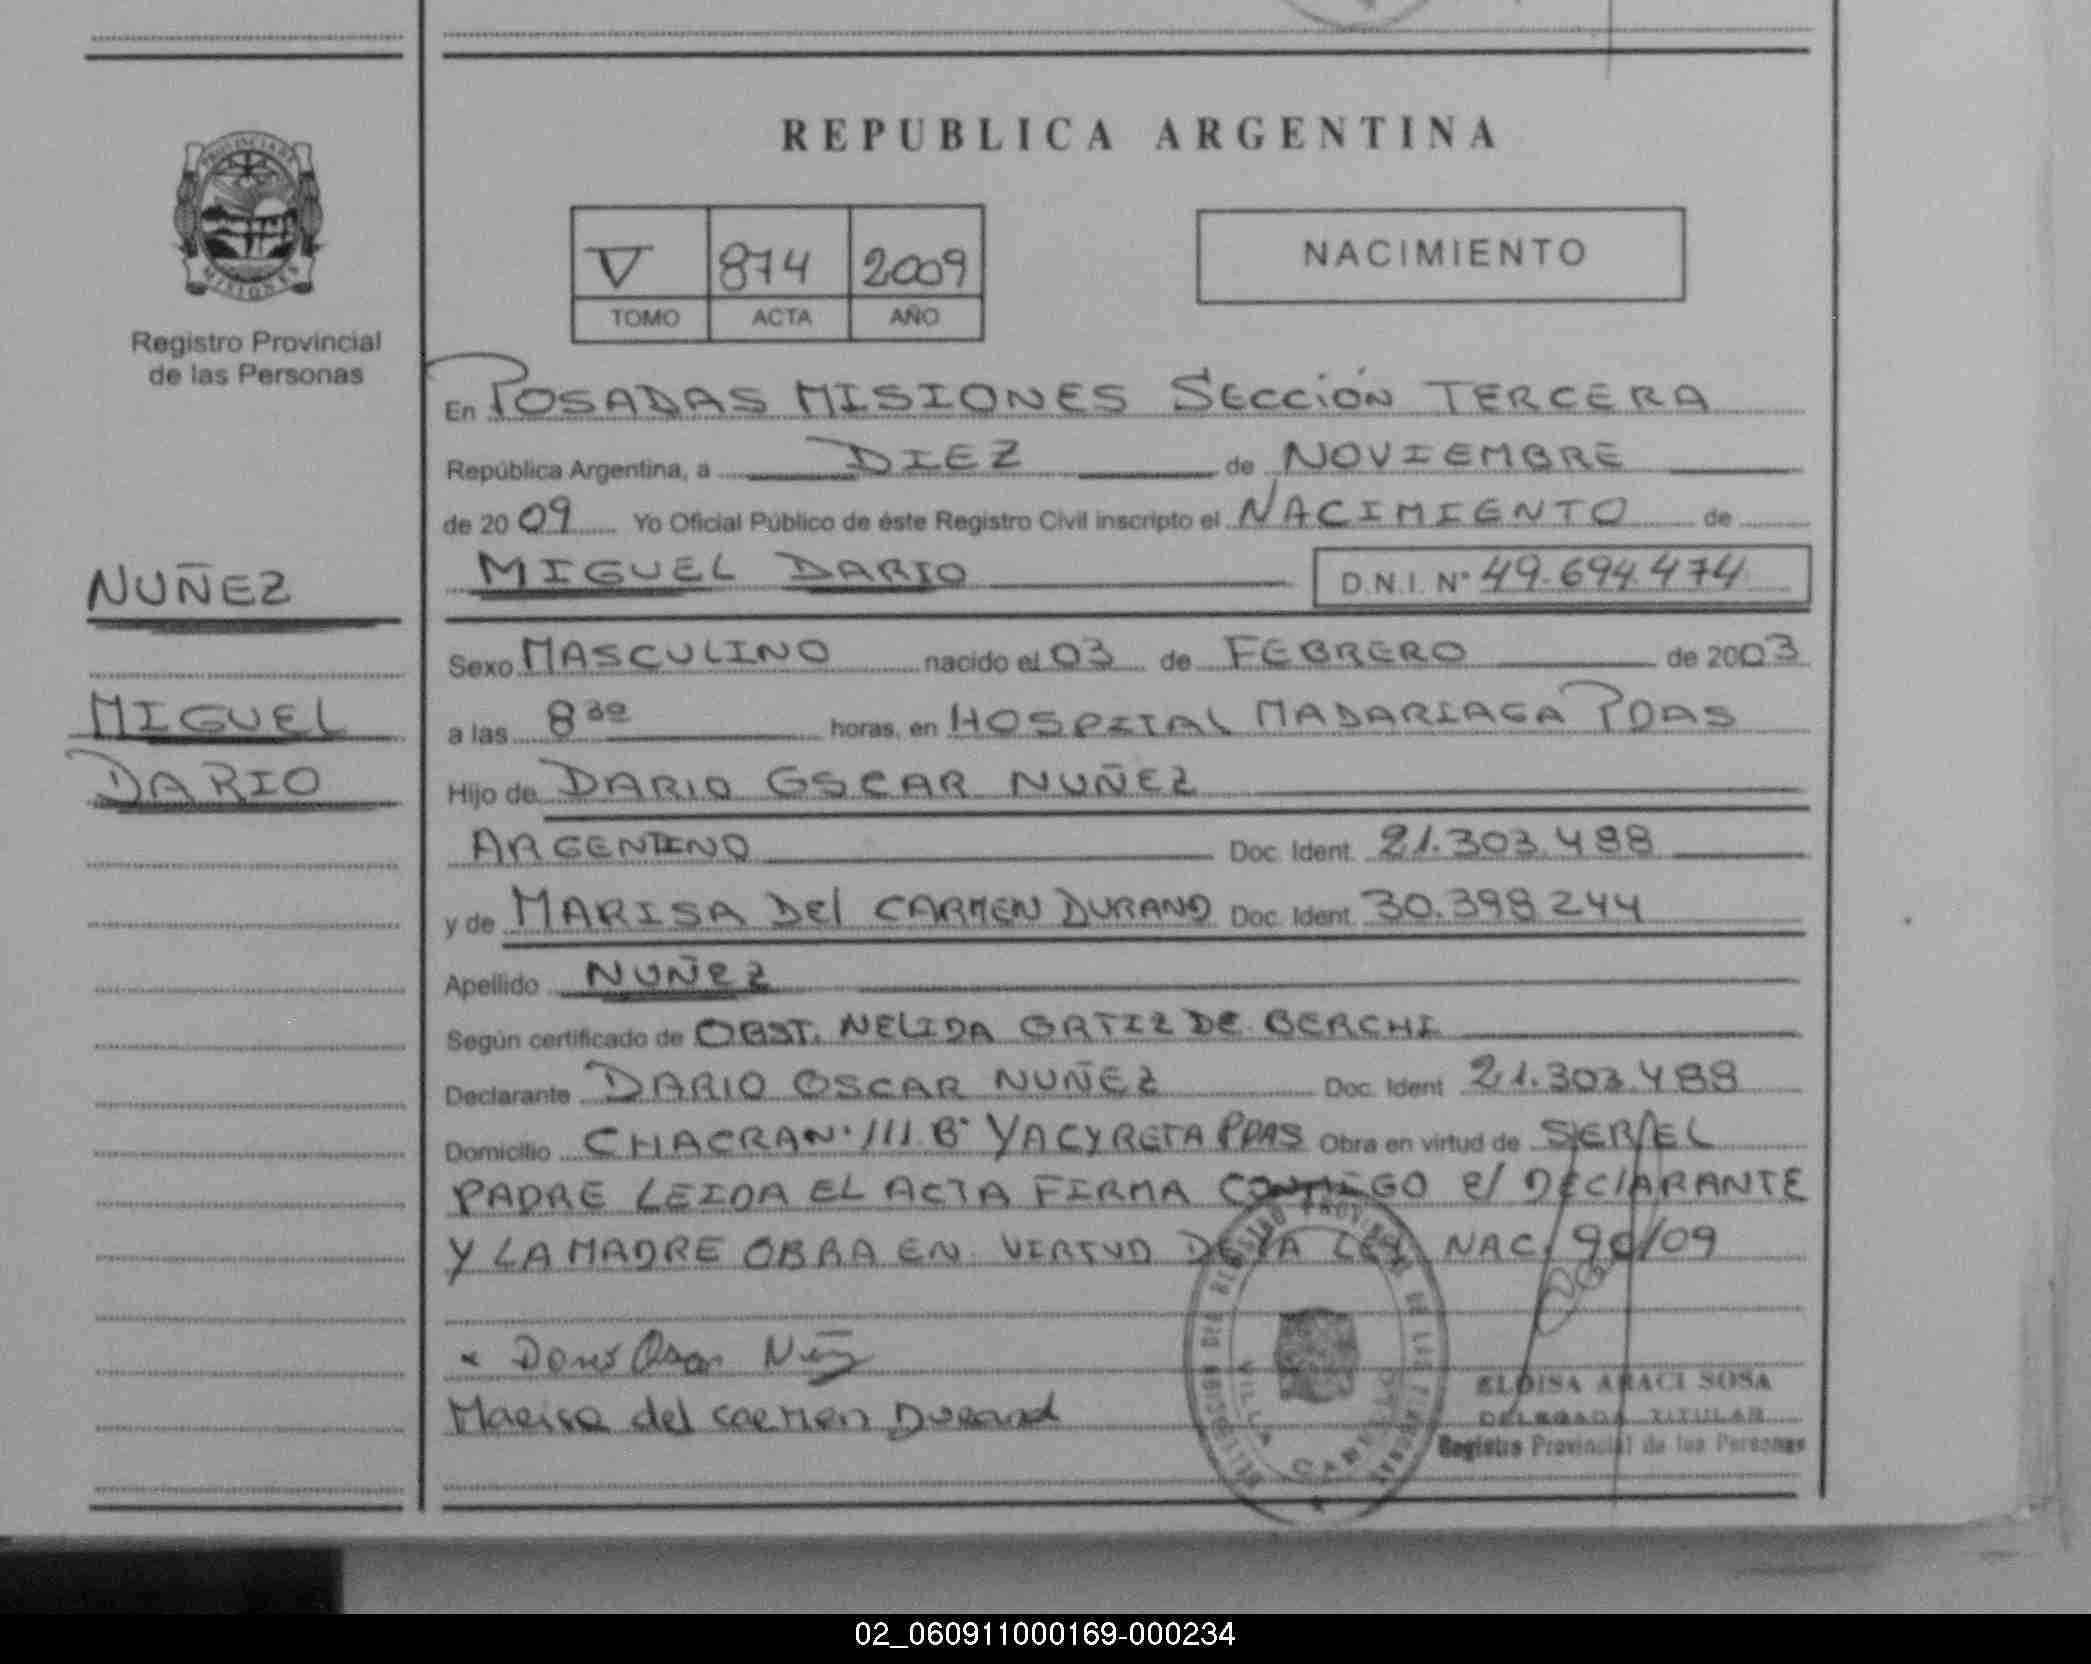 REPUBLICA ARGENTINA
PROVINCIA DE
MISIONES
Registro Provincial
de las Personas
V 874 2009
TOMO ACTA AÑO
NACIMIENTO
En POSADAS MISIONES SECCIÓN TERCERA
República Argentina, a DIEZ de NOVIEMBRE
de 2009 Yo Oficial Público de éste Registro Civil inscripto el NACIMIENTO de
MIGUEL DARIO D.N.I. Nº 49.694.474
NUÑEZ
MIGUEL
DARIO
Sexo MASCULINO nacido el 03 de FEBRERO de 2003
a las 8 30 horas, en HOSPITAL MADARIAGA PDAS
Hijo de DARIO OSCAR NUÑEZ
ARGENTINO Doc. Ident. 21.303.488
y de MARISA DEl CARMEN DURAND Doc. Ident. 30.398.244
Apellido NUÑEZ
Según certificado de OBST. NELIDA ORTIZ DE BERCHI
Declarante DARIO OSCAR NUÑEZ Doc. Ident 21.303.488
Domicilio CHACRA Nº 111 Bº YACYRETA PDAS Obra en virtud de SER EL
PADRE LEIDA EL ACTA FIRMA CONMIGO el DECIARANTE
Y LA MADRE OBRA EN VIRTUD DE LA LEY NAC.
x Dario Oscar Nuñez
Marisa del carmen Durand
ELOISA ARACI SOSA
DELEGADA TITULAR
Registro Provincial de las Personas
02_060911000169-000234